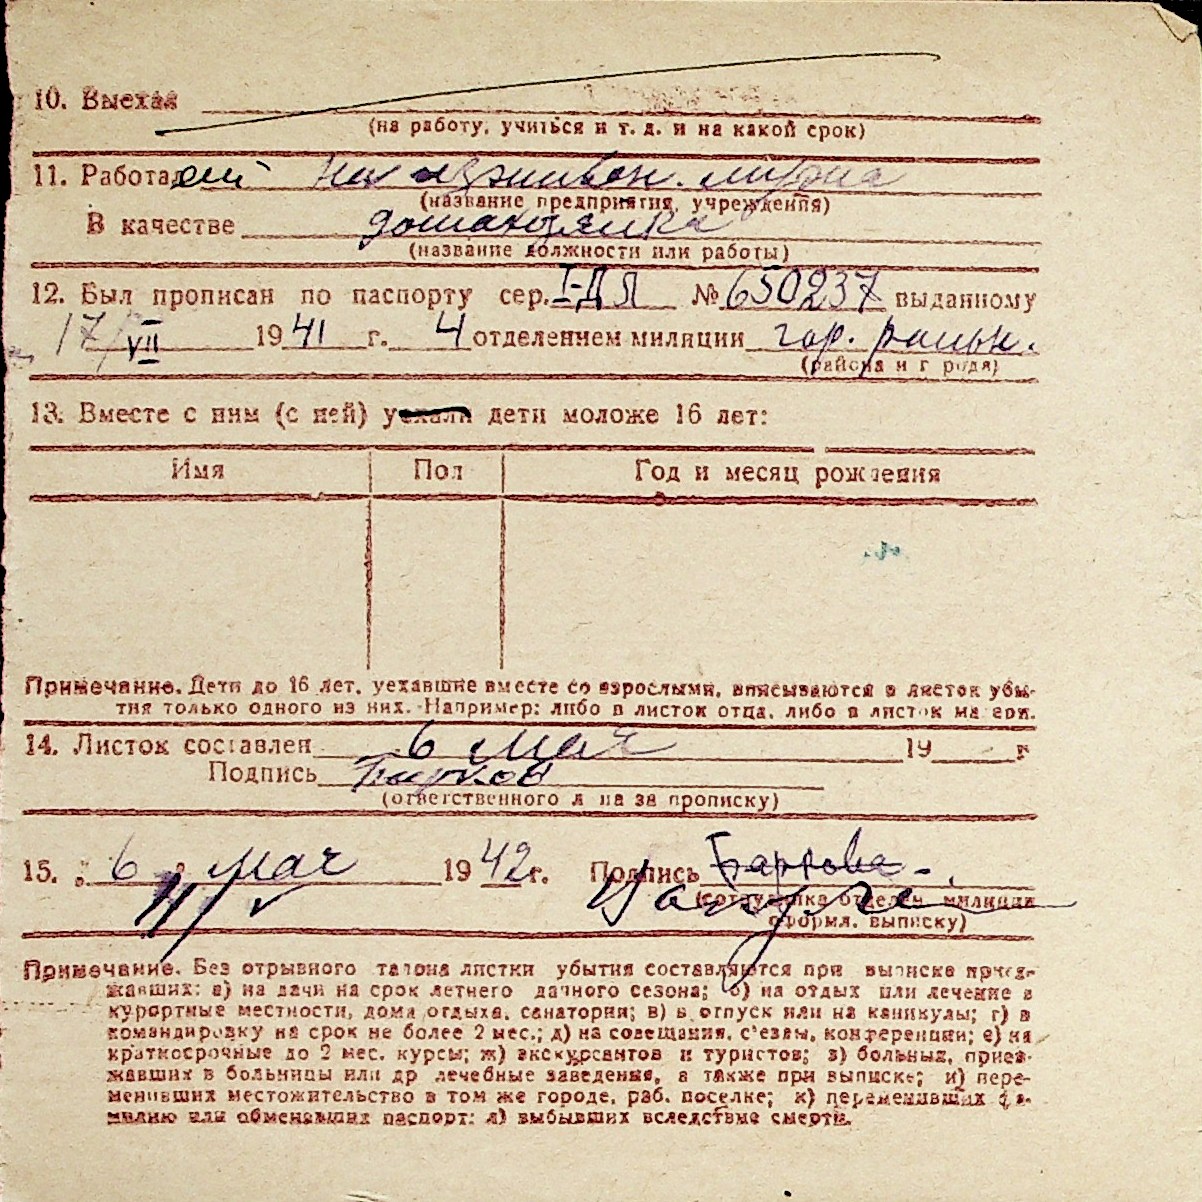 10. Выехал
(на работу, учиться и т. д. и на какой срок)
11. Работа
(название предприятия, учреждения)
В качестве
(название должности или работы)
12. Был прописан по паспорту сер. I-ДЛ № 650237 выданному
17/VII 1941 г. 4 отделением милиции гор.
(района и города)
13. Вместе с ним (с ней) уехали дети моложе 16 лет:
Имя Пол Год и месяц рождения
Примечание. Дети до 16 лет, уехавшие вместе со взрослыми, вписываются в листок убы-
тия только одного из них. Например: либо в листок отца, либо в листок матери.
14. Листок составлен 6 Мая 19 г
Подпись
(ответственного лица за прописку)
15. „ 6 " Мая 1942 г. Подпись
(сотрудника отделен. милиции
оформл. выписку)
Примечание. Без отрывного талона листки убытия составляются при выписке приез-
жавших: а) на дачи на срок летнего дачного сезона; б) на отдых или лечение в
курортные местности, дома отдыха, санатории; в) в отпуск или на каникулы; г) в
командировку на срок не более 2 мес.; д) на совещания, с'езды, конференции; е) на
краткосрочные до 2 мес. курсы; ж) экскурсантов и туристов; з) больных, приез-
жавших в больницы или др лечебные заведения, а также при выписке; и) пере-
менивших местожительство в том же городе, раб. поселке; к) переменивших фа-
милию или обменявших паспорт; л) выбывших вследствие смерти.